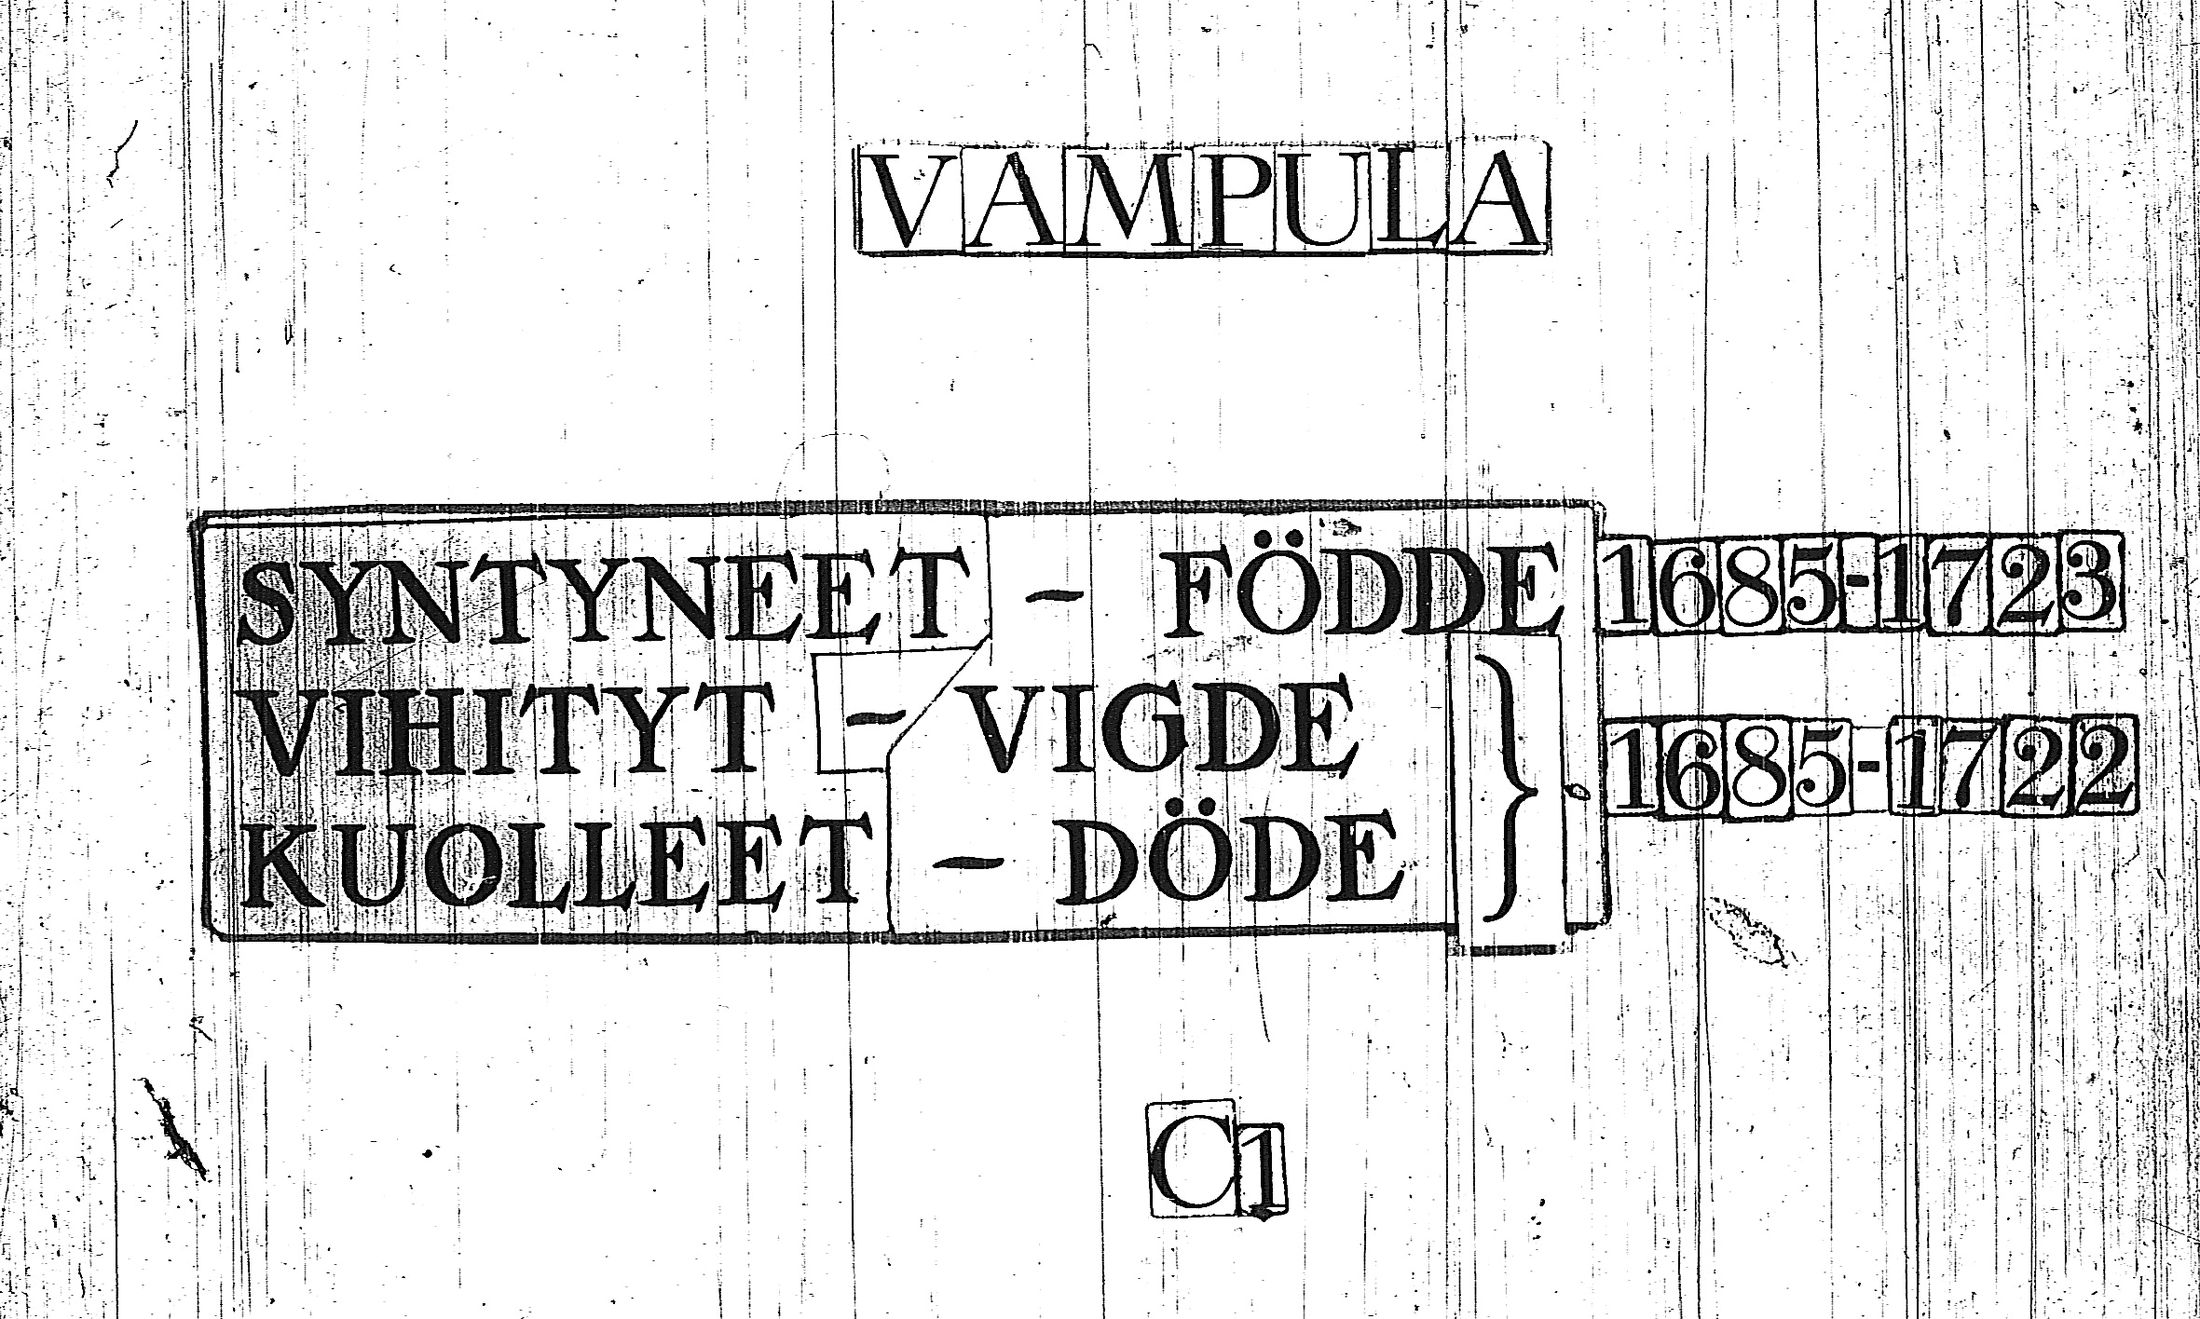 VAMPULA
SYNTYNEET - FÖDDE 1685-1723
VIHITYT - VIGDE
} 1685-1722
KUOLLEET - DÖDE
C1